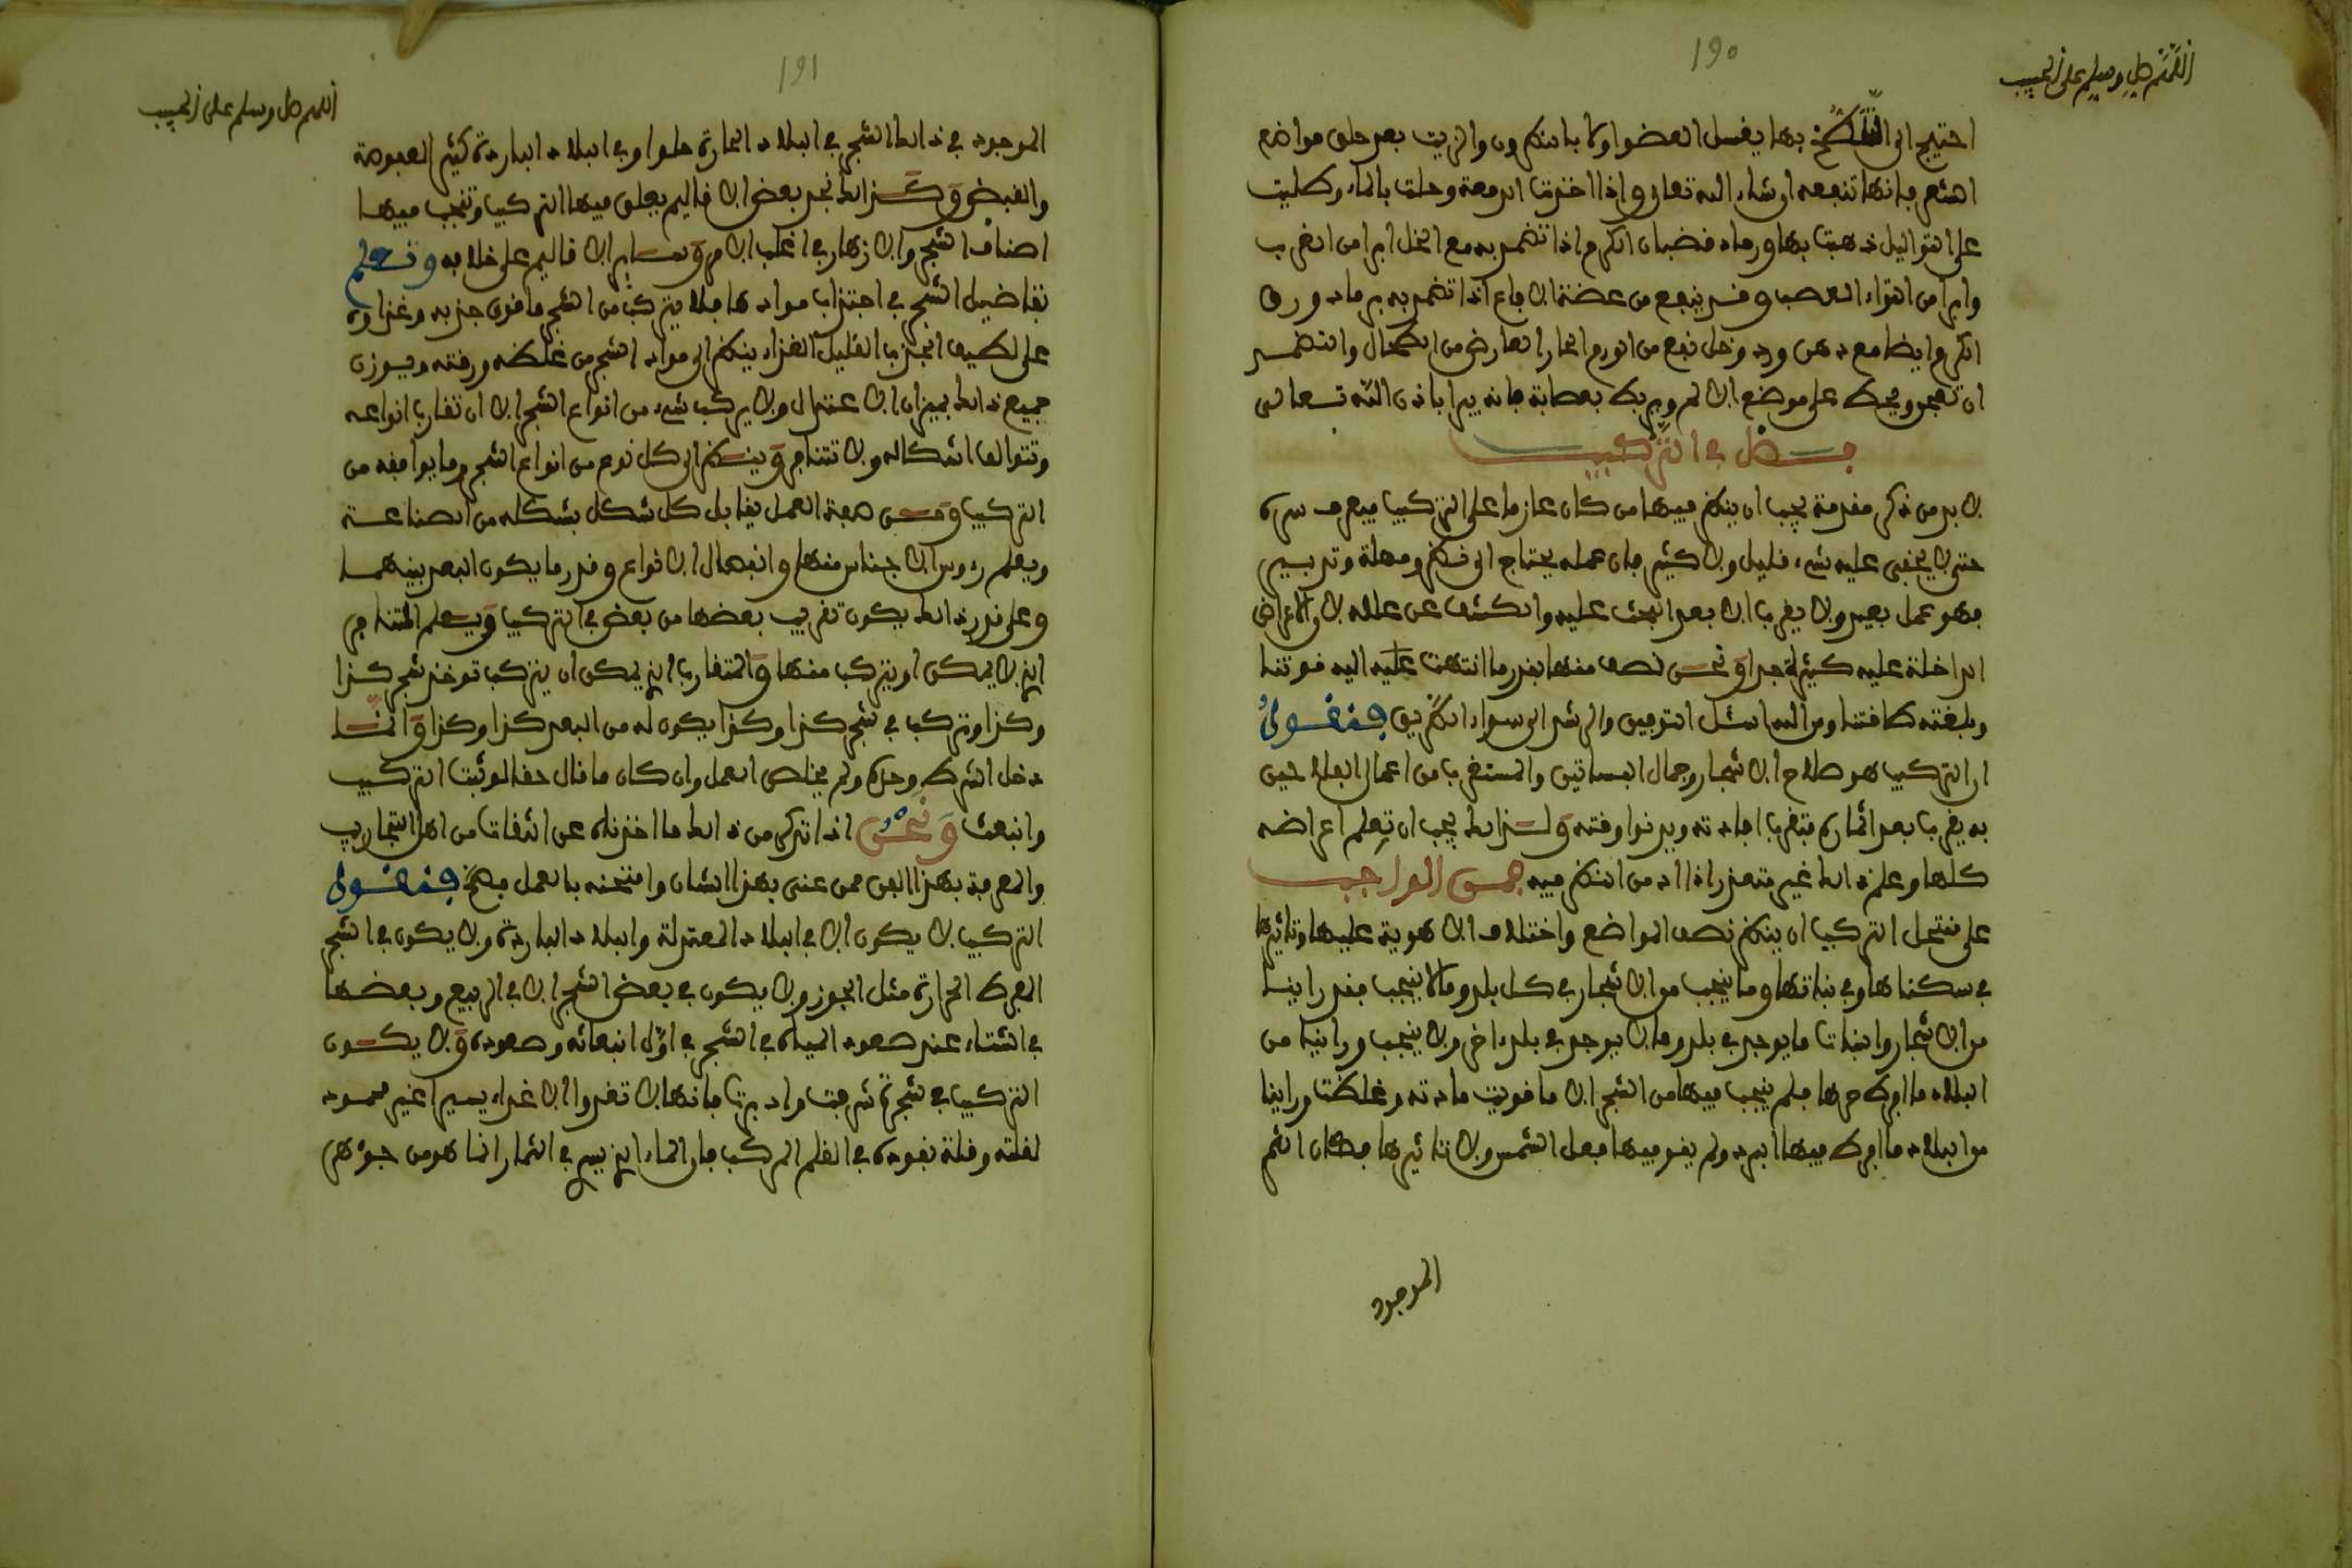 190
اللهم صل وسلم على الحبيب
احتيج الى التلطخ بها يغسل العضو اولا بالنطرون والزيت بعد حلق مواضع
الشعر فانها تنفعه ان شاء الله تعالى واذا اخذت الدمعة وحلت بالماء وطليت
على الثواليل ذهبت بها ورماد قضبان الكرم اذا تضمد به مع الخل ابرا من الغرب
وابرا من التواء العصب وقد ينفع من عضة الافاع اذا تضمد به رماد ورق
الكرم وايضا مع دهن ورد وخل نفع من الورم الحار العارض من الطحال والتضمد
ان تعجن ويحط على موضع الالم ويربط بعصابة فانه يبرا باذن الله تعالى
فصل في التركيب
لا بد من ذكر مقدمة يجب ان ينظر فيها من كان عازما على التركيب فيعرف سره
حتى لا يخفى عليه شيء قليل ولا كثير فان عمله يحتاج الى فكر ومهلة وتدبير
فهو عمل بعيد ولا يقرب الا بعد البحث عليه والكشف عن علله لان الاعراض
الداخلة عليه كثيرة جدا ونحن نصف منها بقدر ما انتهت عليه اليه قوتنا
وبلغته طاقتنا ومن الله اسئل التوفيق والرشد الى سواء الطريق فنقول
ان التركيب هو صلاح الاشجار وجمال البساتين والمستغرب من اعمال الفلاحين
به يقرب بعد اثماره فتقرب افادته ويدنوا وقته ولذلك يجب ان تعلم اعراضه
كلها وعلم ذلك غير متعذر اذا اد من النظر فيه فمن الواجب
على منتحل التركيب ان ينظر نصف المواضع واختلاف الاهوية عليها وتاثيرها
في سكناها وفي نباتها وما ينجب من الاشجار في كل بلد وما لا ينجب فقد راينا
من الاشجار والنبات ما يوجد في بلد وما لا يوجد في بلد اخر ولا ينجب وراينا من
البلاد ما افرط حرها فلم ينجب فيها من الشجر الا ما قويت مادته وغلظت وراينا
من البلاد ما افرط فيها البرد ولم يقو فيها فعل الشمس ولا تاثيرها فكان الثمر
الموجود
191
اللهم صل وسلم على الحبيب
الموجود في ذلك الشجر في البلاد الحارة حلوا وفي البلاد الباردة كثير العفوصة
والقبض وكذلك نجد بعض الاقاليم يعلق فيها التركيب وتنجب فيها
اصناف الشجر والازهار في اغلب الامر وساير الاقاليم على خلافه وتعلم
تفاضيل الشجر في اجتذاب موادها فلا يتركب من الشجر ما قوى جذبه وغذاوه
على لطيف الجذب القليل الغذاء ينظر الى مواد الشجر من غلظه ورقته ويوزن
جميع ذلك بميزان الاعتدال ولا يركب شيء من انواع الشجر الا ان تقارب انواعه
وتتوالف اشكاله ولا تتنافر وينظر الى كل نوع من انواع الشجر وما يوافقه من
التركيب وحسن صفة العمل يقابل كل شكل بشكله من الصناعة
ويعلم رءوس الاجناس منها وانفصال الانواع وقدر ما يكون البعد بينهما
وعلى قدر ذلك يكون تقريب بعضها من بعض في التركيب ويعلم المتنافر
الذي لا يمكن ان يتركب منها والمتقارب الذي يمكن ان يتركب توخذ شجر كذا
وكذا وتركب في شجر كذا وكذا يكون له من البعد كذا وكذا وانما
دخل الشرط وحده ولم يخلص العمل وان كان ما قال حقا لو ثبت التركيب
وانبعث ونحن اذا نذكر من ذلك ما اخذناه عن الثقات من اهل التجاريب
والمعرفة بهذا الفن ممن عنى بهذا الشان وامتحنه بالعمل فصح فنقول
التركيب لا يكون الا في البلاد المعتدلة والبلاد الباردة ولا يكون في الشجر
المفرط الحرارة مثل الجوز ولا يكون في بعض الشجر الا في الربيع وبعضها
في الشتاء عند صعود المياه في الشجر في اول انبعاثه وصعوده ولا يكون
التركيب في شجرة شرفت وادبرت فانها لا تغذوا الا غذاء يسيرا غير محمود
لقلته وقلة نفوذه في القلم المركب فان الماء الذي يسير في الثمار انما هو من جوهر